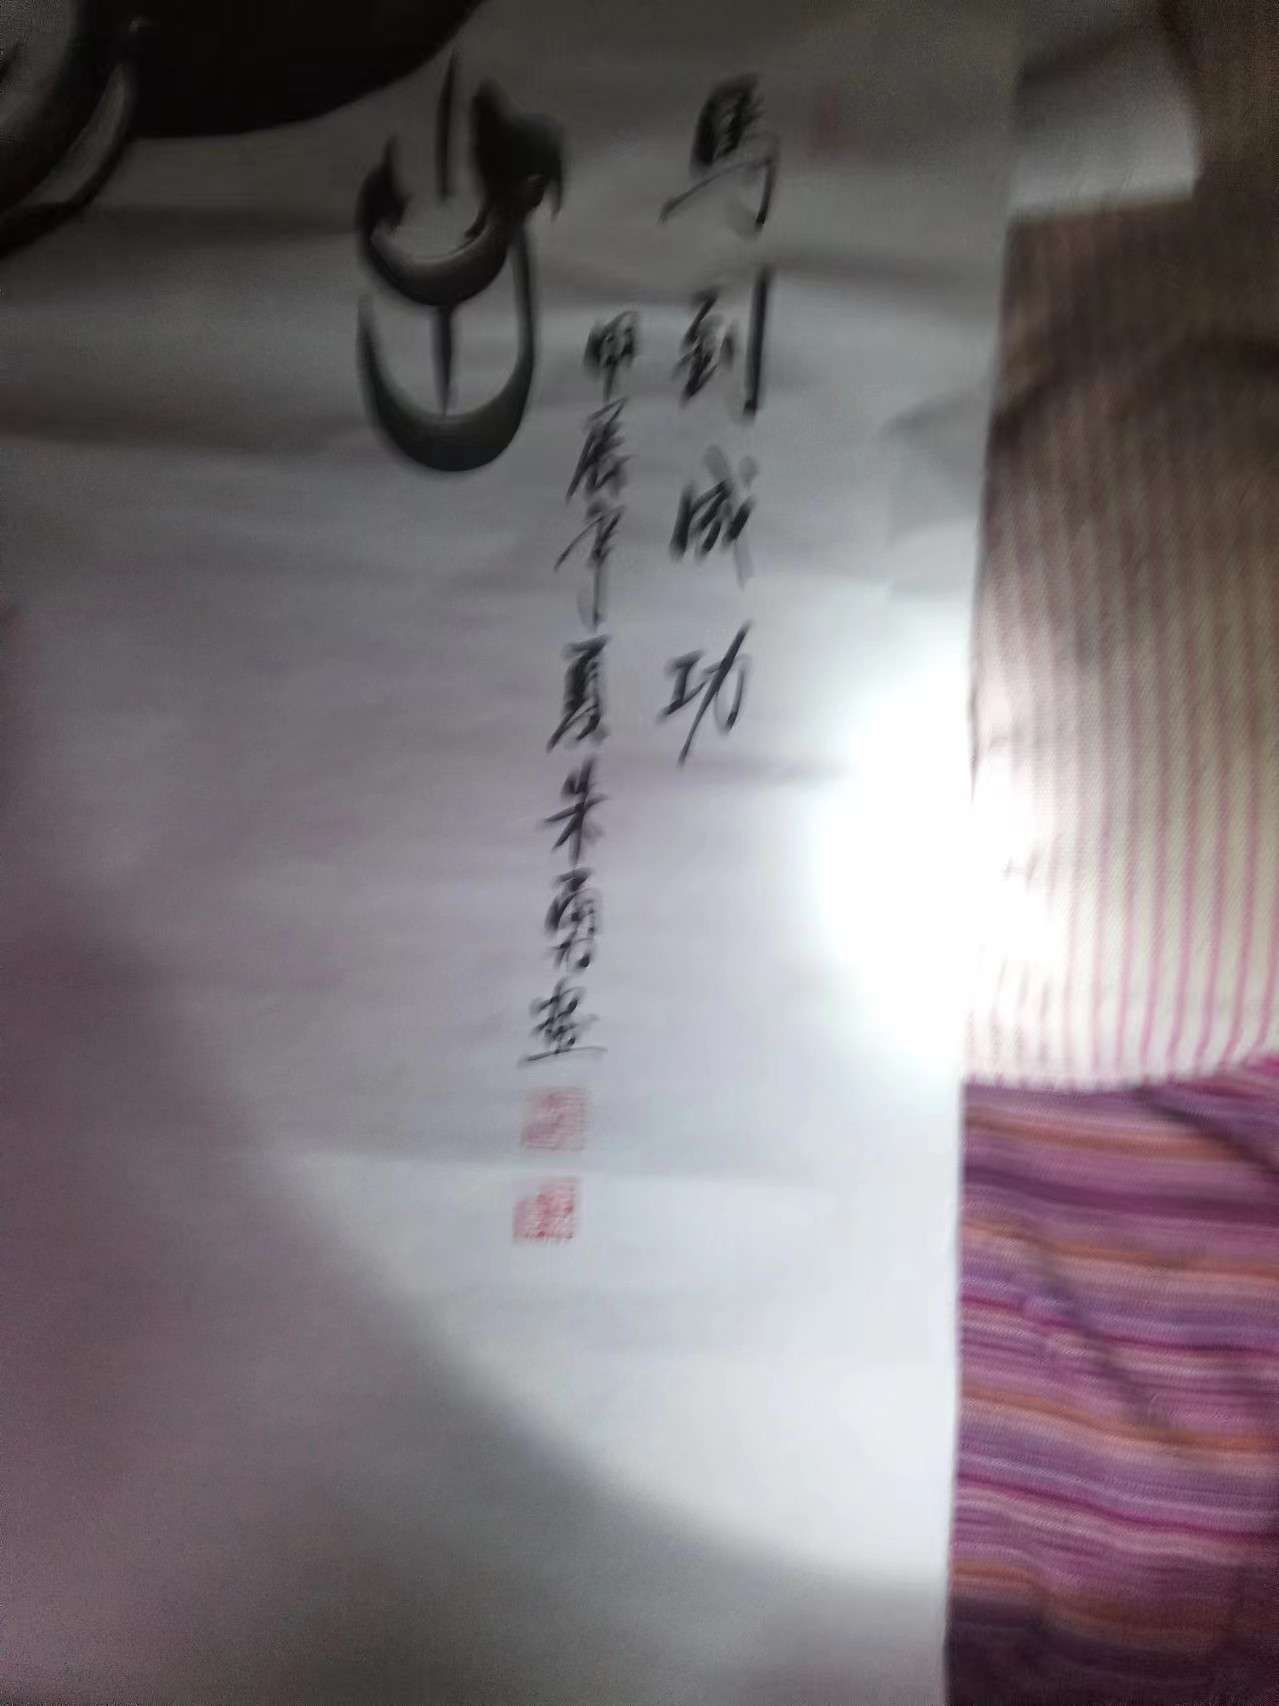 马到成功
甲辰年夏朱